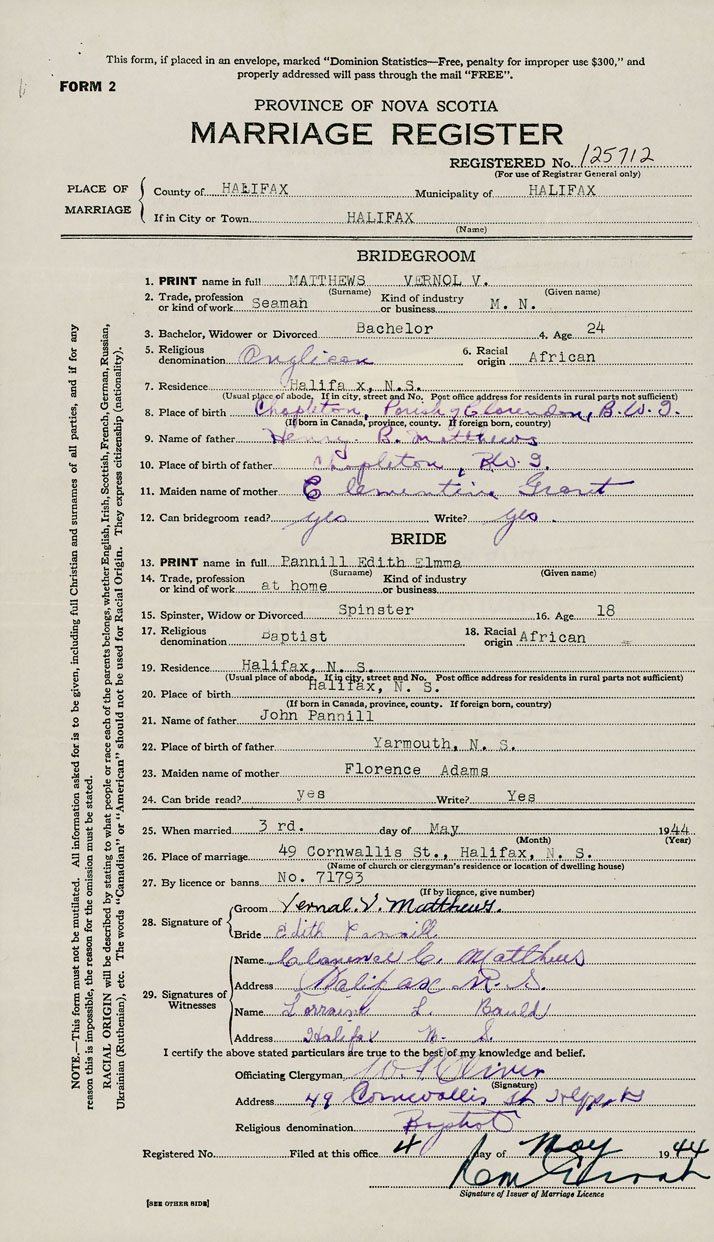 This form, if placed in an envelope, marked "Dominion Statistics—Free, penalty for improper use $300," and
properly addressed will pass through the mail "FREE".
FORM 2
PROVINCE OF NOVA SCOTIA
MARRIAGE REGISTER
REGISTERED No. 125712
(For use of Registrar General only)
PLACE OF MARRIAGE
County of HALIFAX Municipality of HALIFAX
If in City or Town HALIFAX
(Name)
BRIDEGROOM
1. PRINT name in full MATTHEWS VERNOL V.
(Surname) (Given name)
2. Trade, profession or kind of work Seaman Kind of industry or business M. N.
3. Bachelor, Widower or Divorced Bachelor 4. Age 24
5. Religious denomination Anglican 6. Racial origin African
7. Residence Halifa x, N.S.
(Usual place of abode. If in city, street and No. Post office address for residents in rural parts not sufficient)
8. Place of birth Chapleton, Parish of Clarendon, B.W.I.
(If born in Canada, province, county. If foreign born, country)
9. Name of father Henry B. Matthews
10. Place of birth of father Chapleton, B.W.I.
11. Maiden name of mother Clementina Grant
12. Can bridegroom read? yes Write? yes.
BRIDE
13. PRINT name in full Pannill Edith Elmma
(Surname) (Given name)
14. Trade, profession or kind of work at home Kind of industry or business
15. Spinster, Widow or Divorced Spinster 16. Age 18
17. Religious denomination Baptist 18. Racial origin African
19. Residence Halifax, N. S.
(Usual place of abode. If in city, street and No. Post office address for residents in rural parts not sufficient)
20. Place of birth Halifax, N. S.
(If born in Canada, province, county. If foreign born, country)
21. Name of father John Pannill
22. Place of birth of father Yarmouth, N. S.
23. Maiden name of mother Florence Adams
24. Can bride read? yes Write? Yes
25. When married 3 rd. day of May 1944
(Month) (Year)
26. Place of marriage 49 Cornwallis St., Halifax, N. S.
(Name of church or clergyman's residence or location of dwelling house)
27. By licence or banns No. 71793
(If by licence, give number)
28. Signature of
Groom Vernal. V. Matthews.
Bride Edith Pannill
29. Signatures of Witnesses
Name Clarence C. Matthews
Address Halifax N. S.
Name Lorraine L. Bauld
Address Halifax N. S.
I certify the above stated particulars are true to the best of my knowledge and belief.
Officiating Clergyman W. P. Oliver
(Signature)
Address 49 Cornwallis St
Religious denomination Baptist
Registered No. Filed at this office 4 day of May 1944
Signature of Issuer of Marriage Licence
[SEE OTHER SIDE]
NOTE.—This form must not be mutilated. All information asked for is to be given, including full Christian and surnames of all parties, and if for any
reason this is impossible, the reason for the omission must be stated.
RACIAL ORIGIN will be described by stating to what people or race each of the parents belongs, whether English, Irish, Scottish, French, German, Russian,
Ukrainian (Ruthenian), etc. The words "Canadian" or "American" should not be used for Racial Origin. They express citizenship (nationality).